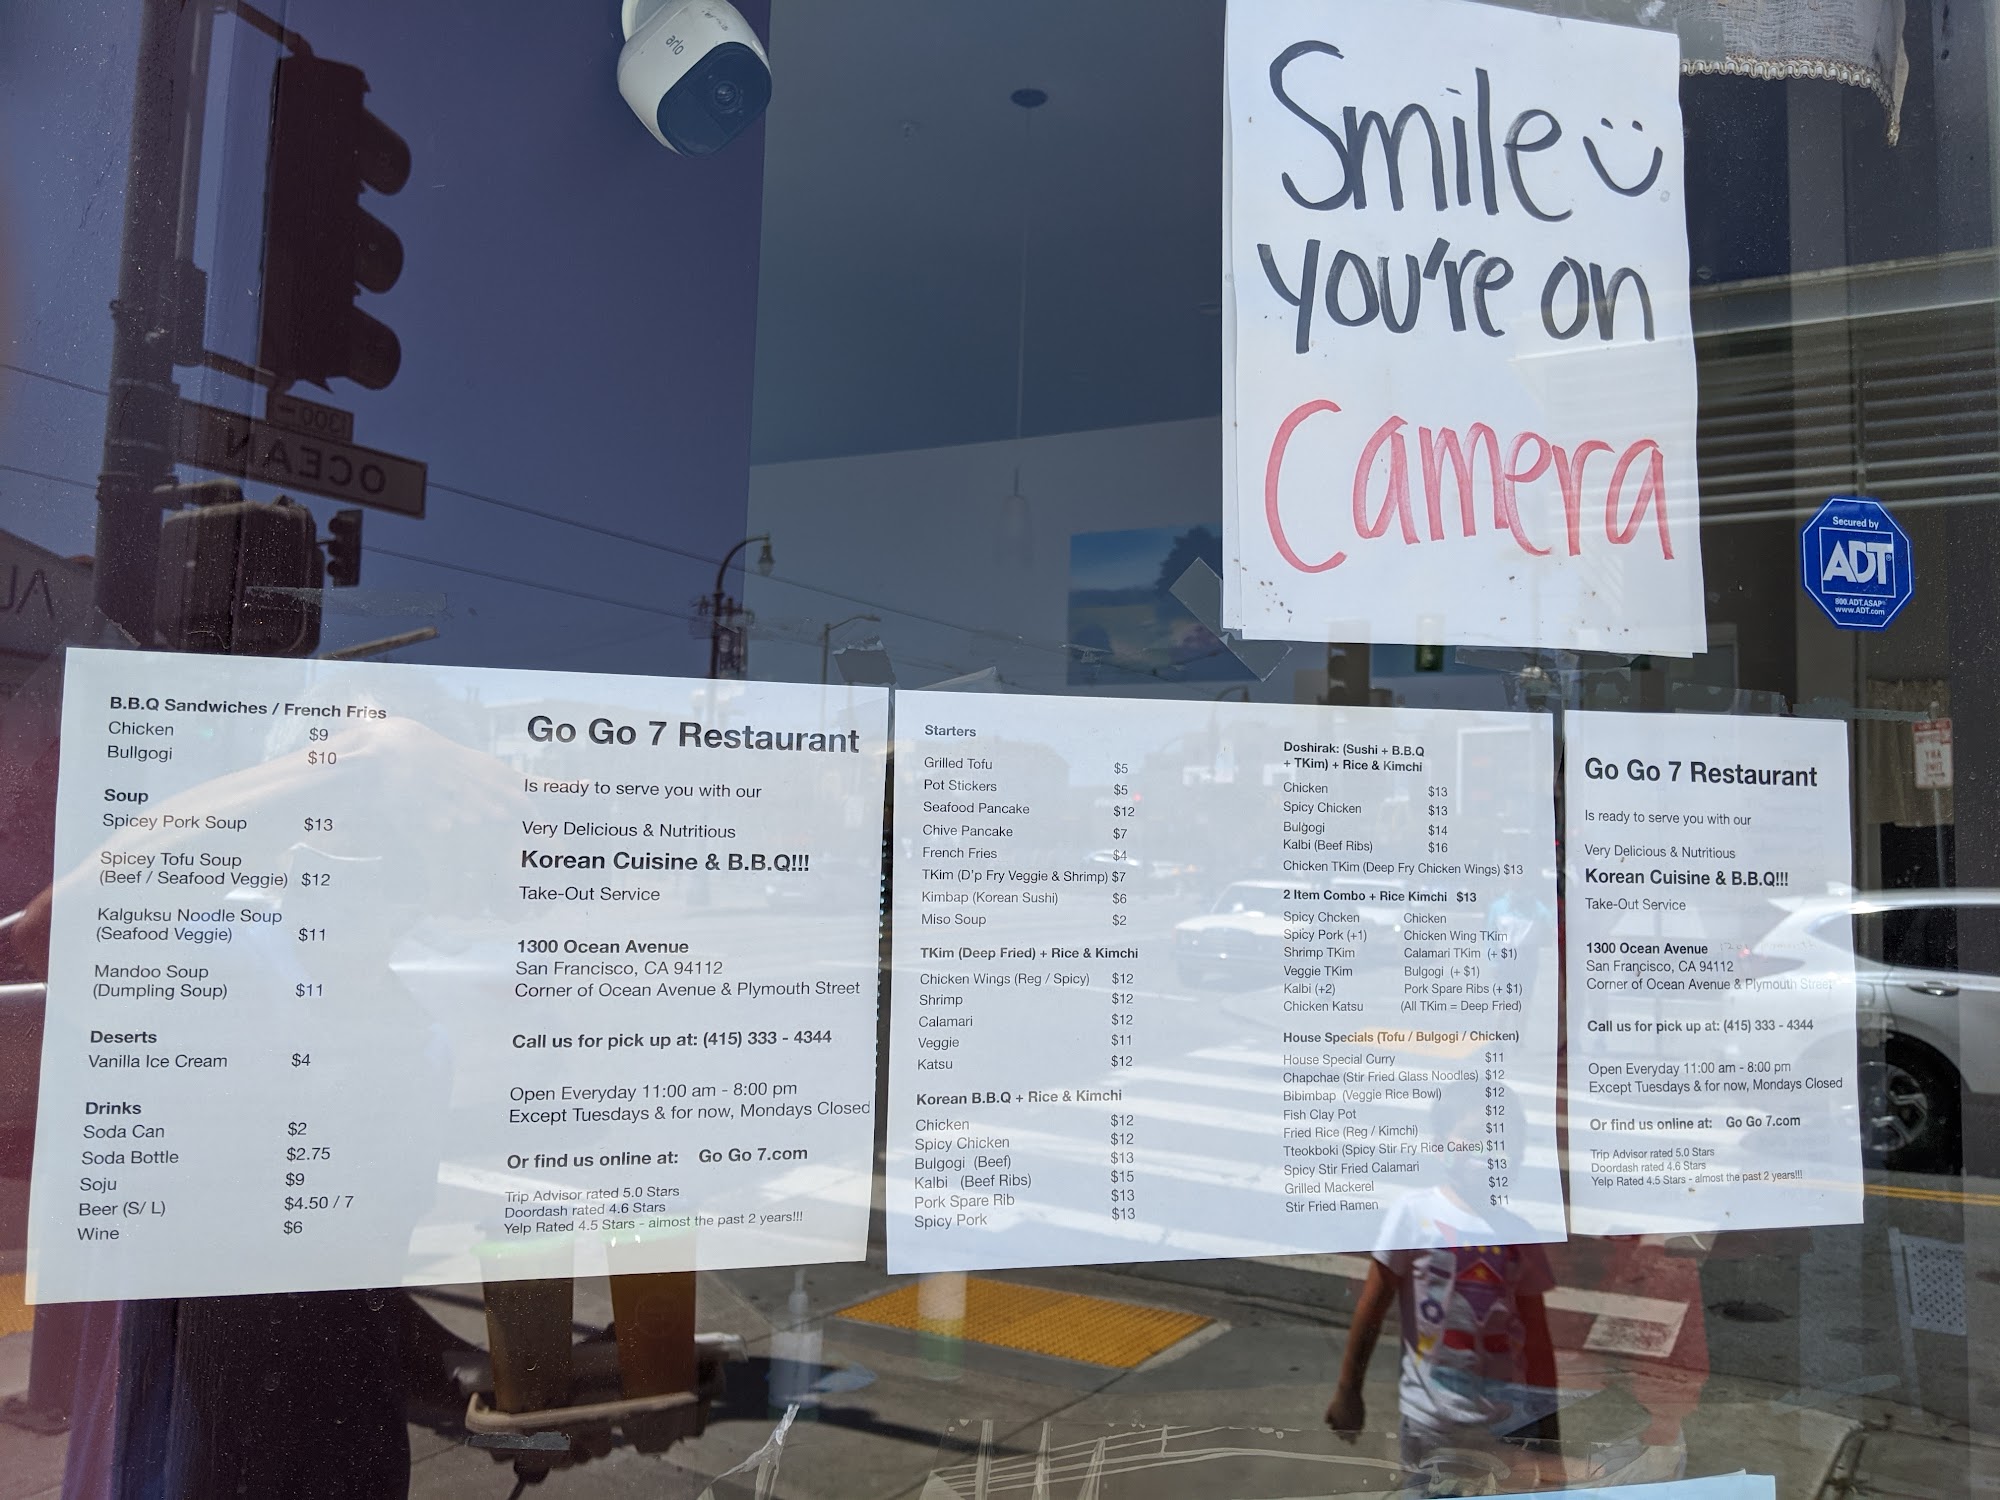 arlo
Smile
you're on
Camera
Secured by
ADT
800.ADT.ASAP
www.ADT.com
1300
OCEAN
B.B.Q Sandwiches / French Fries
Chicken $9
Bullgogi $10
Soup
Spicey Pork Soup $13
Spicey Tofu Soup
(Beef / Seafood Veggie) $12
Kalguksu Noodle Soup
(Seafood Veggie) $11
Mandoo Soup
(Dumpling Soup) $11
Deserts
Vanilla Ice Cream $4
Drinks
Soda Can $2
Soda Bottle $2.75
Soju $9
Beer (S/ L) $4.50 / 7
Wine $6
Go Go 7 Restaurant
Is ready to serve you with our
Very Delicious & Nutritious
Korean Cuisine & B.B.Q!!!
Take-Out Service
1300 Ocean Avenue
San Francisco, CA 94112
Corner of Ocean Avenue & Plymouth Street
Call us for pick up at: (415) 333 - 4344
Open Everyday 11:00 am - 8:00 pm
Except Tuesdays & for now, Mondays Closed
Or find us online at: Go Go 7.com
Trip Advisor rated 5.0 Stars
Doordash rated 4.6 Stars
Yelp Rated 4.5 Stars - almost the past 2 years!!!
Starters
Grilled Tofu $5
Pot Stickers $5
Seafood Pancake $12
Chive Pancake $7
French Fries $4
TKim (D'p Fry Veggie & Shrimp) $7
Kimbap (Korean Sushi) $6
Miso Soup $2
TKim (Deep Fried) + Rice & Kimchi
Chicken Wings (Reg / Spicy) $12
Shrimp $12
Calamari $12
Veggie $11
Katsu $12
Korean B.B.Q + Rice & Kimchi
Chicken $12
Spicy Chicken $12
Bulgogi (Beef) $13
Kalbi (Beef Ribs) $15
Pork Spare Rib $13
Spicy Pork $13
Doshirak: (Sushi + B.B.Q
+ TKim) + Rice & Kimchi
Chicken $13
Spicy Chicken $13
Bulgogi $14
Kalbi (Beef Ribs) $16
Chicken TKim (Deep Fry Chicken Wings) $13
2 Item Combo + Rice Kimchi $13
Spicy Chcken Chicken
Spicy Pork (+1) Chicken Wing TKim
Shrimp TKim Calamari TKim (+ $1)
Veggie TKim Bulgogi (+ $1)
Kalbi (+2) Pork Spare Ribs (+ $1)
Chicken Katsu (All TKim = Deep Fried)
House Specials (Tofu / Bulgogi / Chicken)
House Special Curry $11
Chapchae (Stir Fried Glass Noodles) $12
Bibimbap (Veggie Rice Bowl) $12
Fish Clay Pot $12
Fried Rice (Reg / Kimchi) $11
Tteokboki (Spicy Stir Fry Rice Cakes) $11
Spicy Stir Fried Calamari $13
Grilled Mackerel $12
Stir Fried Ramen $11
Go Go 7 Restaurant
Is ready to serve you with our
Very Delicious & Nutritious
Korean Cuisine & B.B.Q!!!
Take-Out Service
1300 Ocean Avenue
San Francisco, CA 94112
Corner of Ocean Avenue & Plymouth Street
Call us for pick up at: (415) 333 - 4344
Open Everyday 11:00 am - 8:00 pm
Except Tuesdays & for now, Mondays Closed
Or find us online at: Go Go 7.com
Trip Advisor rated 5.0 Stars
Doordash rated 4.6 Stars
Yelp Rated 4.5 Stars - almost the past 2 years!!!